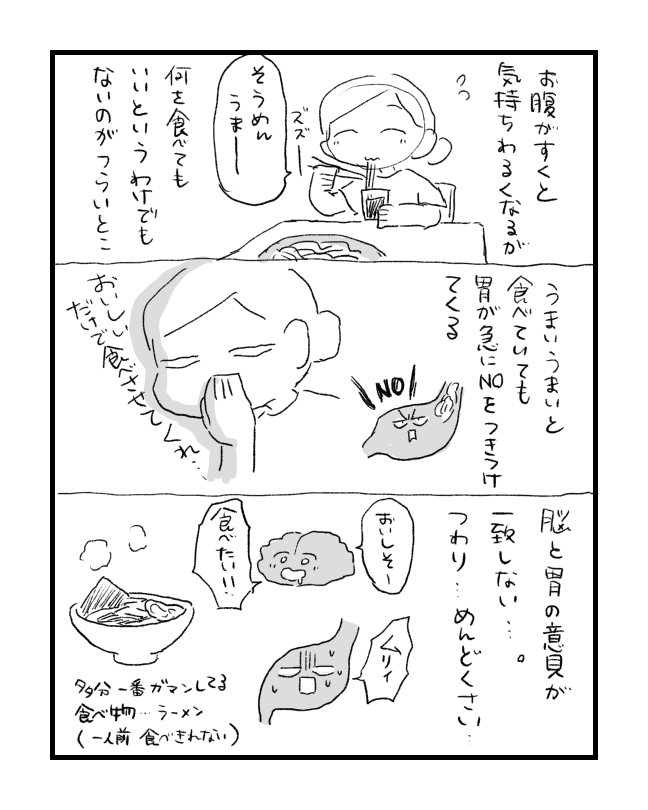 お腹がすくと
気持ちわるくなるが
ズズー
そうめん
うまー
何を食べても
いいというわけでも
ないのがつらいとこ
うまいうまいと
食べていても
胃が急にNOをつきつけ
てくる
NO
おいしい
だけで食べさせてくれ…
脳と胃の意見が
一致しない…。
つわり…めんどくさい…
おいしそー
食べたい!!
ムリィ
多分一番ガマンしてる
食べ物…ラーメン
(一人前 食べきれない)